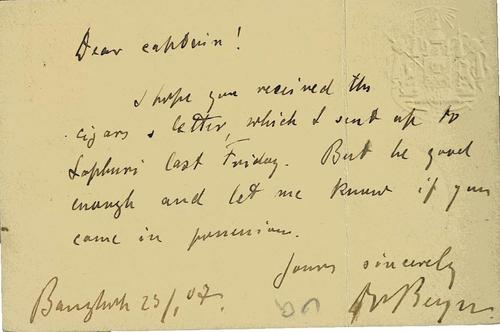 Dear captain!
I hope you received the
cigars & letter, which I sent up to
Lopburi last Friday. But be good
enough and let me know if you
came in possession.
Yours sincerely
Bangkok 23/1 07.